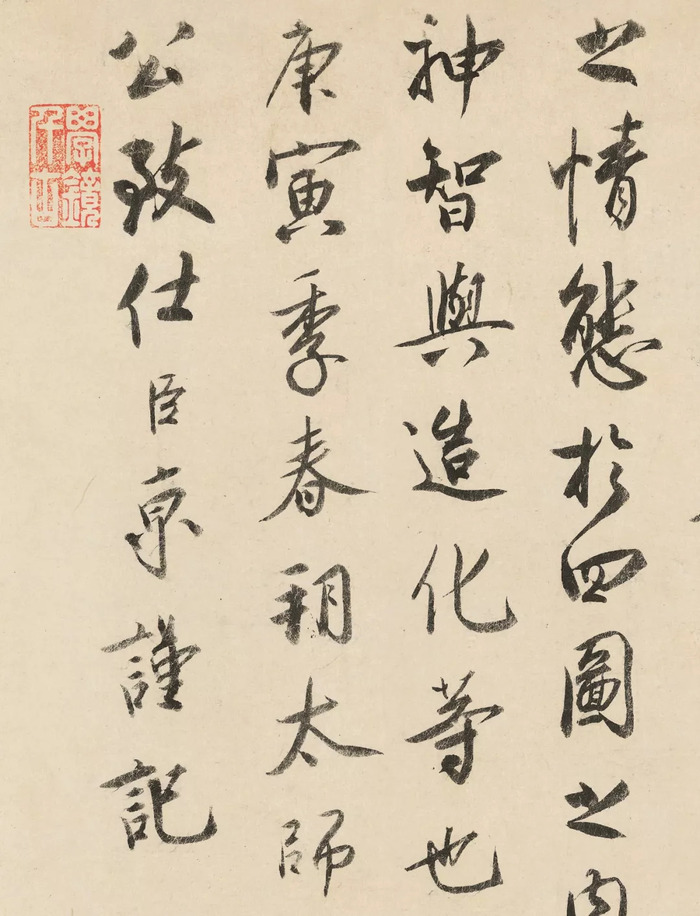 之情態於四圖之内
神智與造化等也
庚寅季春朔太師
公致仕臣京謹記